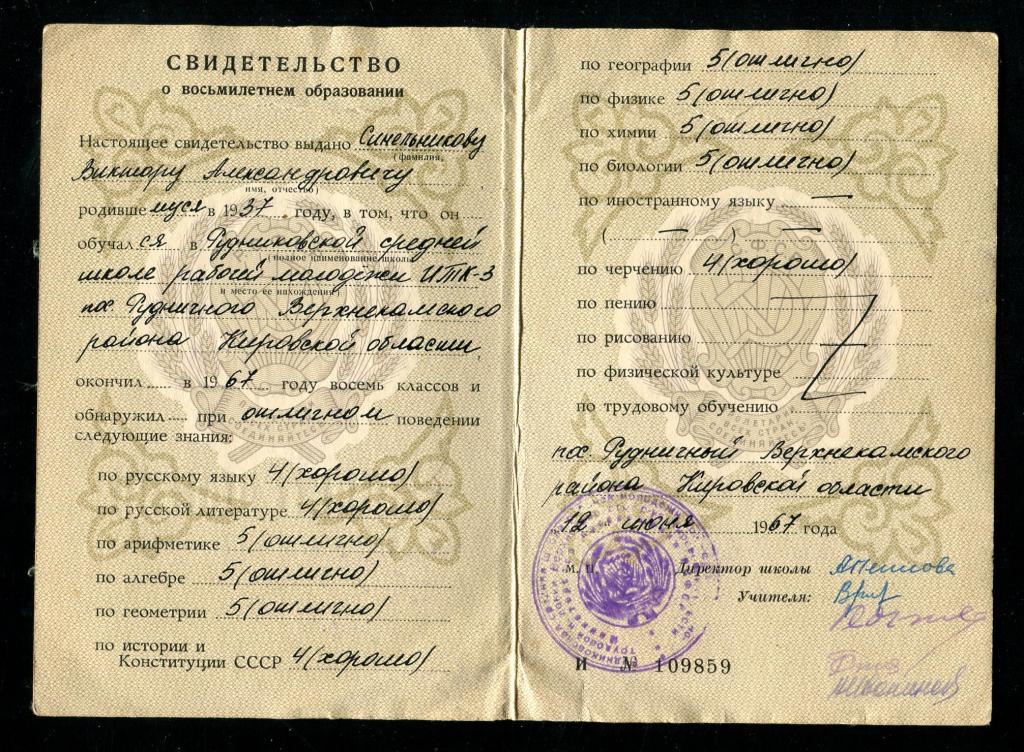 СВИДЕТЕЛЬСТВО
о восьмилетнем образовании
Настоящее свидетельство выдано Синельникову
(фамилия,
Виктору Александровичу
имя, отчество)
родившемуся в 1937 году, в том, что он
обучался в Рудниковской средней
(полное наименование школы
школе рабочей молодёжи ИТК-3
и место ее нахождения)
пос. Рудничного Верхнекамского
района Кировской области
окончил в 1967 году восемь классов и
обнаружил при отличном поведении
следующие знания:
по русскому языку 4(хорошо)
по русской литературе 4(хорошо)
по арифметике 5(отлично)
по алгебре 5(отлично)
по геометрии 5(отлично)
по истории и
Конституции СССР 4(хорошо)
по географии 5(отлично)
по физике 5(отлично)
по химии 5(отлично)
по биологии 5(отлично)
по иностранному языку —
( — ) —
по черчению 4(хорошо)
по пению
по рисованию
по физической культуре
по трудовому обучению
пос. Рудничный Верхнекамского
района Кировской области
12 июня 1967 года
м. п. Директор школы
Учителя:
И № 109859